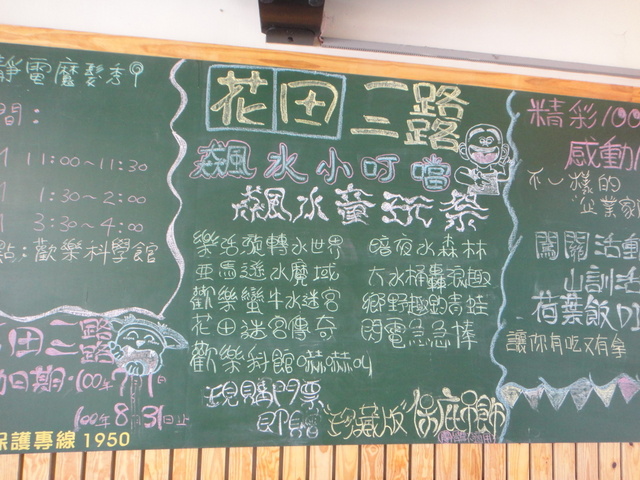 靜電魔髮秀
間：
11:00～11:30
1:30～2:00
3:30～4:00
點：歡樂科學館
花田二路
飆水小叮噹
飆水童玩祭
樂洗旋轉水世界
亞馬遜水魔域
歡樂蠻牛水迷宮
花田迷宮傳奇
歡樂科館嚇嚇叫
暗夜水森林
大水桶轟浪趣
鄉野趣釣青蛙
閃電急急棒
現購門票
即贈
珍藏版
田二路
日期：100年7月1日
100年8月31日止
保護專線1950
精彩100
感動
不一樣的
企業家
闖關活動
山訓活
荷葉飯DI
讓你有吃又有拿